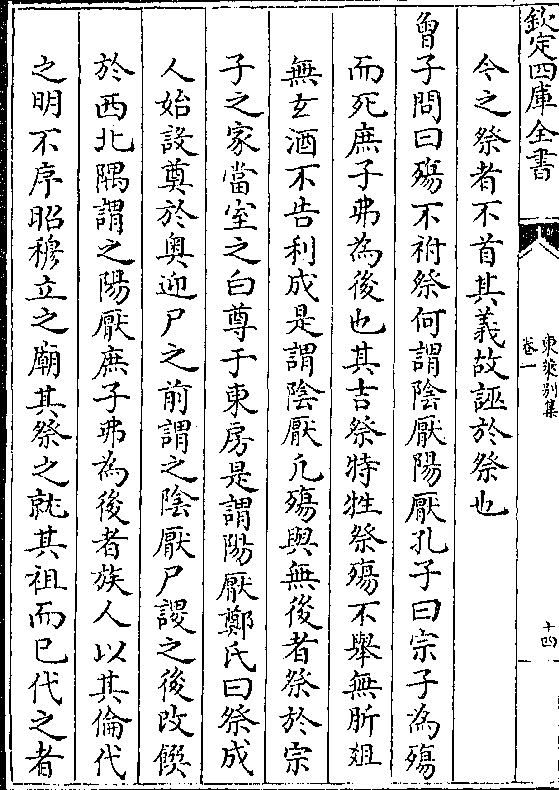 欽定四庫全書
東萊別集
卷一
十四
今之祭者不首其義故誣於祭也
曾子問曰殤不祔祭何謂陰厭陽厭孔子曰宗子為殤
而死庶子弗為後也其吉祭特牲祭殤不舉無肵俎
無玄酒不告利成是謂陰厭凡殤與無後者祭於宗
子之家當室之白尊于東房是謂陽厭鄭氏曰祭成
人始設奠於奥迎尸之前謂之陰厭尸謖之後改饌
於西北隅謂之陽厭庶子弗為後者族人以其倫代
之明不序昭穆立之廟其祭之就其祖而已代之者